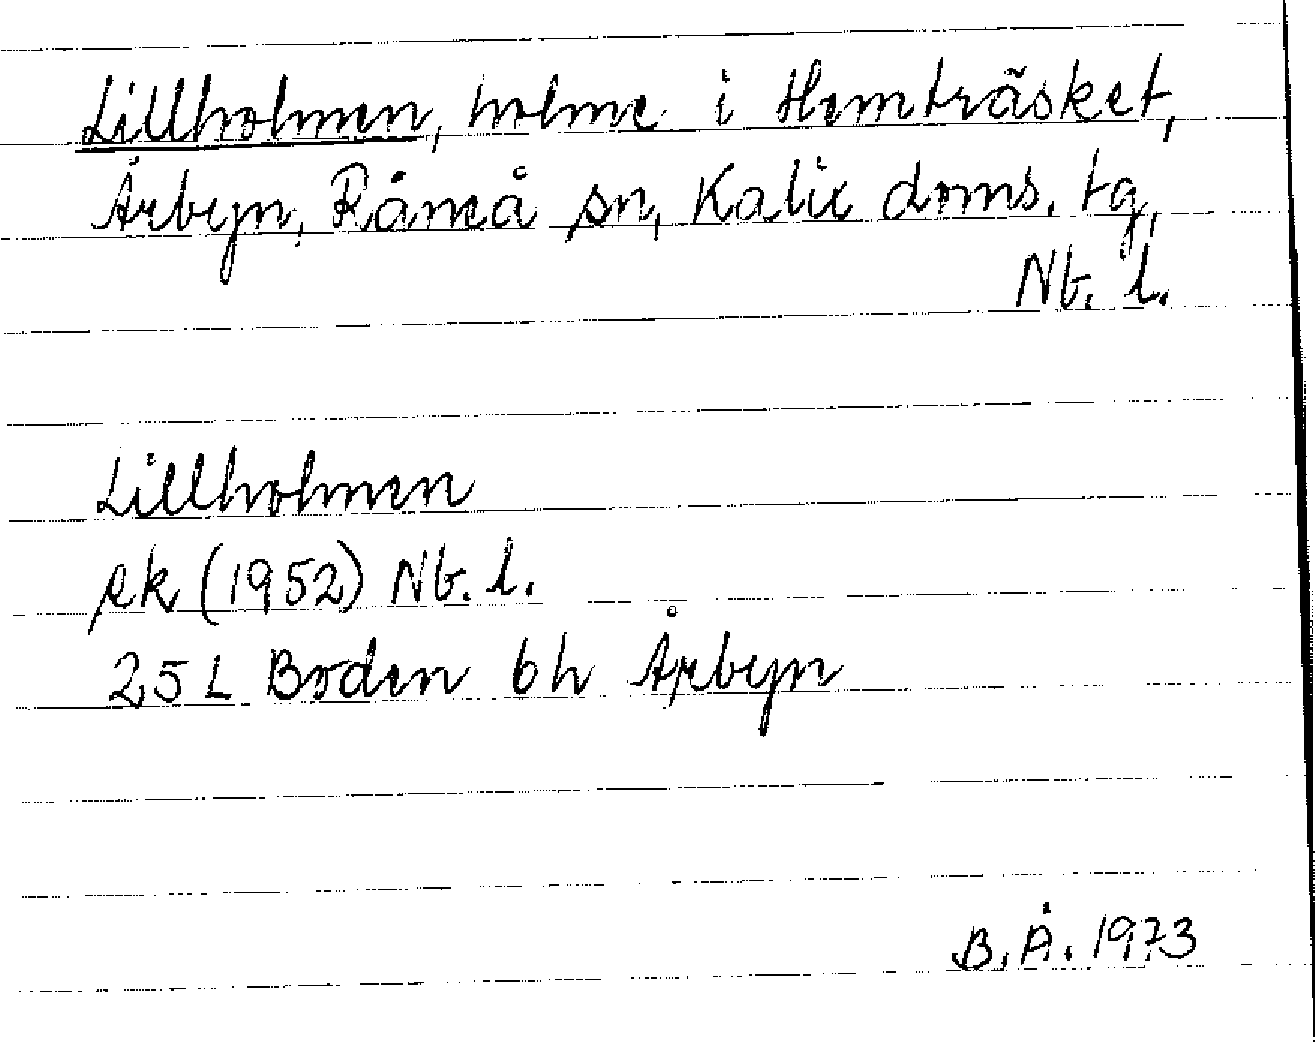 Lillholmen, holme i Hemträsket,
Årbyn, Råneå sn, Kalix doms. tg,
Nb. l.
Lillholmen
ek (1952) Nb. l.
25 L Boden 6h Årbyn
B. Å. 1973